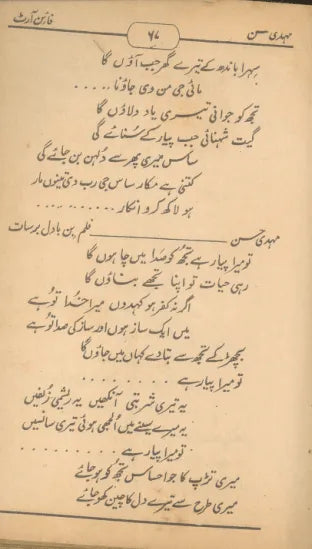 مہدی حسن ۶۷ فائن آرٹ
سہرا باندھ کے تیرے گھر جب آؤں گا
مائی جی من دی جاؤنا . . . . .
تجھ کو جوانی تیری یاد دلاؤں گا
گیت شہنائی جب پیار کے سنائے گی
ساس میری پھر سے دلہن بن جائے گی
کتنی ہے مکار ساس جی رب دی تینوں مار
ہو لاکھ کرو انکار . . . . . . . . . . .
مہدی حسن ــــــــــــــــ فلم، بن بادل برسات
تو میرا پیار ہے تجھ کو صدا میں چاہوں گا
رہی حیات تو اپنا تجھے بناؤں گا
اگر نہ کفر ہو کہدوں میرا خدا تو ہے
میں ایک ساز ہوں اور ساز کی صدا تو ہے
بچھڑ کے تجھ سے بتا دے کہاں میں جاؤں گا
تو میرا پیار ہے . . . . . . . . .
یہ تیری شربتی آنکھیں یہ ریشمی زلفیں
یہ میرے سینے میں الجھی ہوئی تیری سانسیں
تو میرا پیار ہے . . . . . . . . .
میری تڑپ کا جو احساس تجھ کو ہو جائے
میری طرح سے تیرے دل کا چین کھو جائے